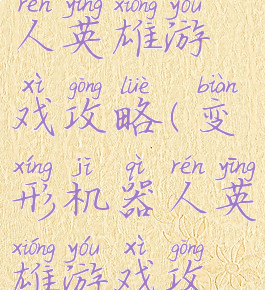 rén yīng xióng yóu
人英雄游
xì gōng lüè biàn
戏攻略(变
xíng jī qì rén yīng
形机器人英
xióng yóu xì gōng
雄游戏攻